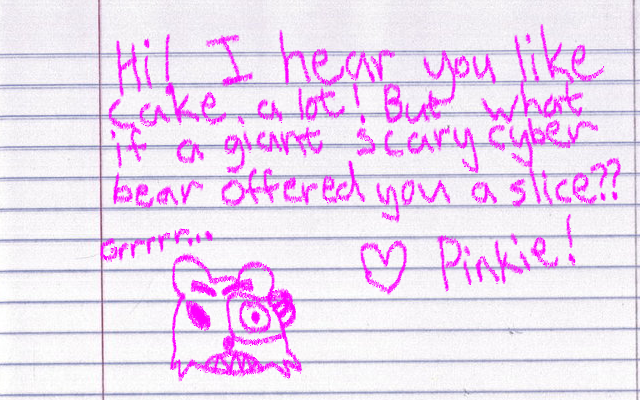 Hi! I hear you like
cake, a lot! But what
if a giant scary cyber
bear offered you a slice??
Grrrrr...
♡ Pinkie!